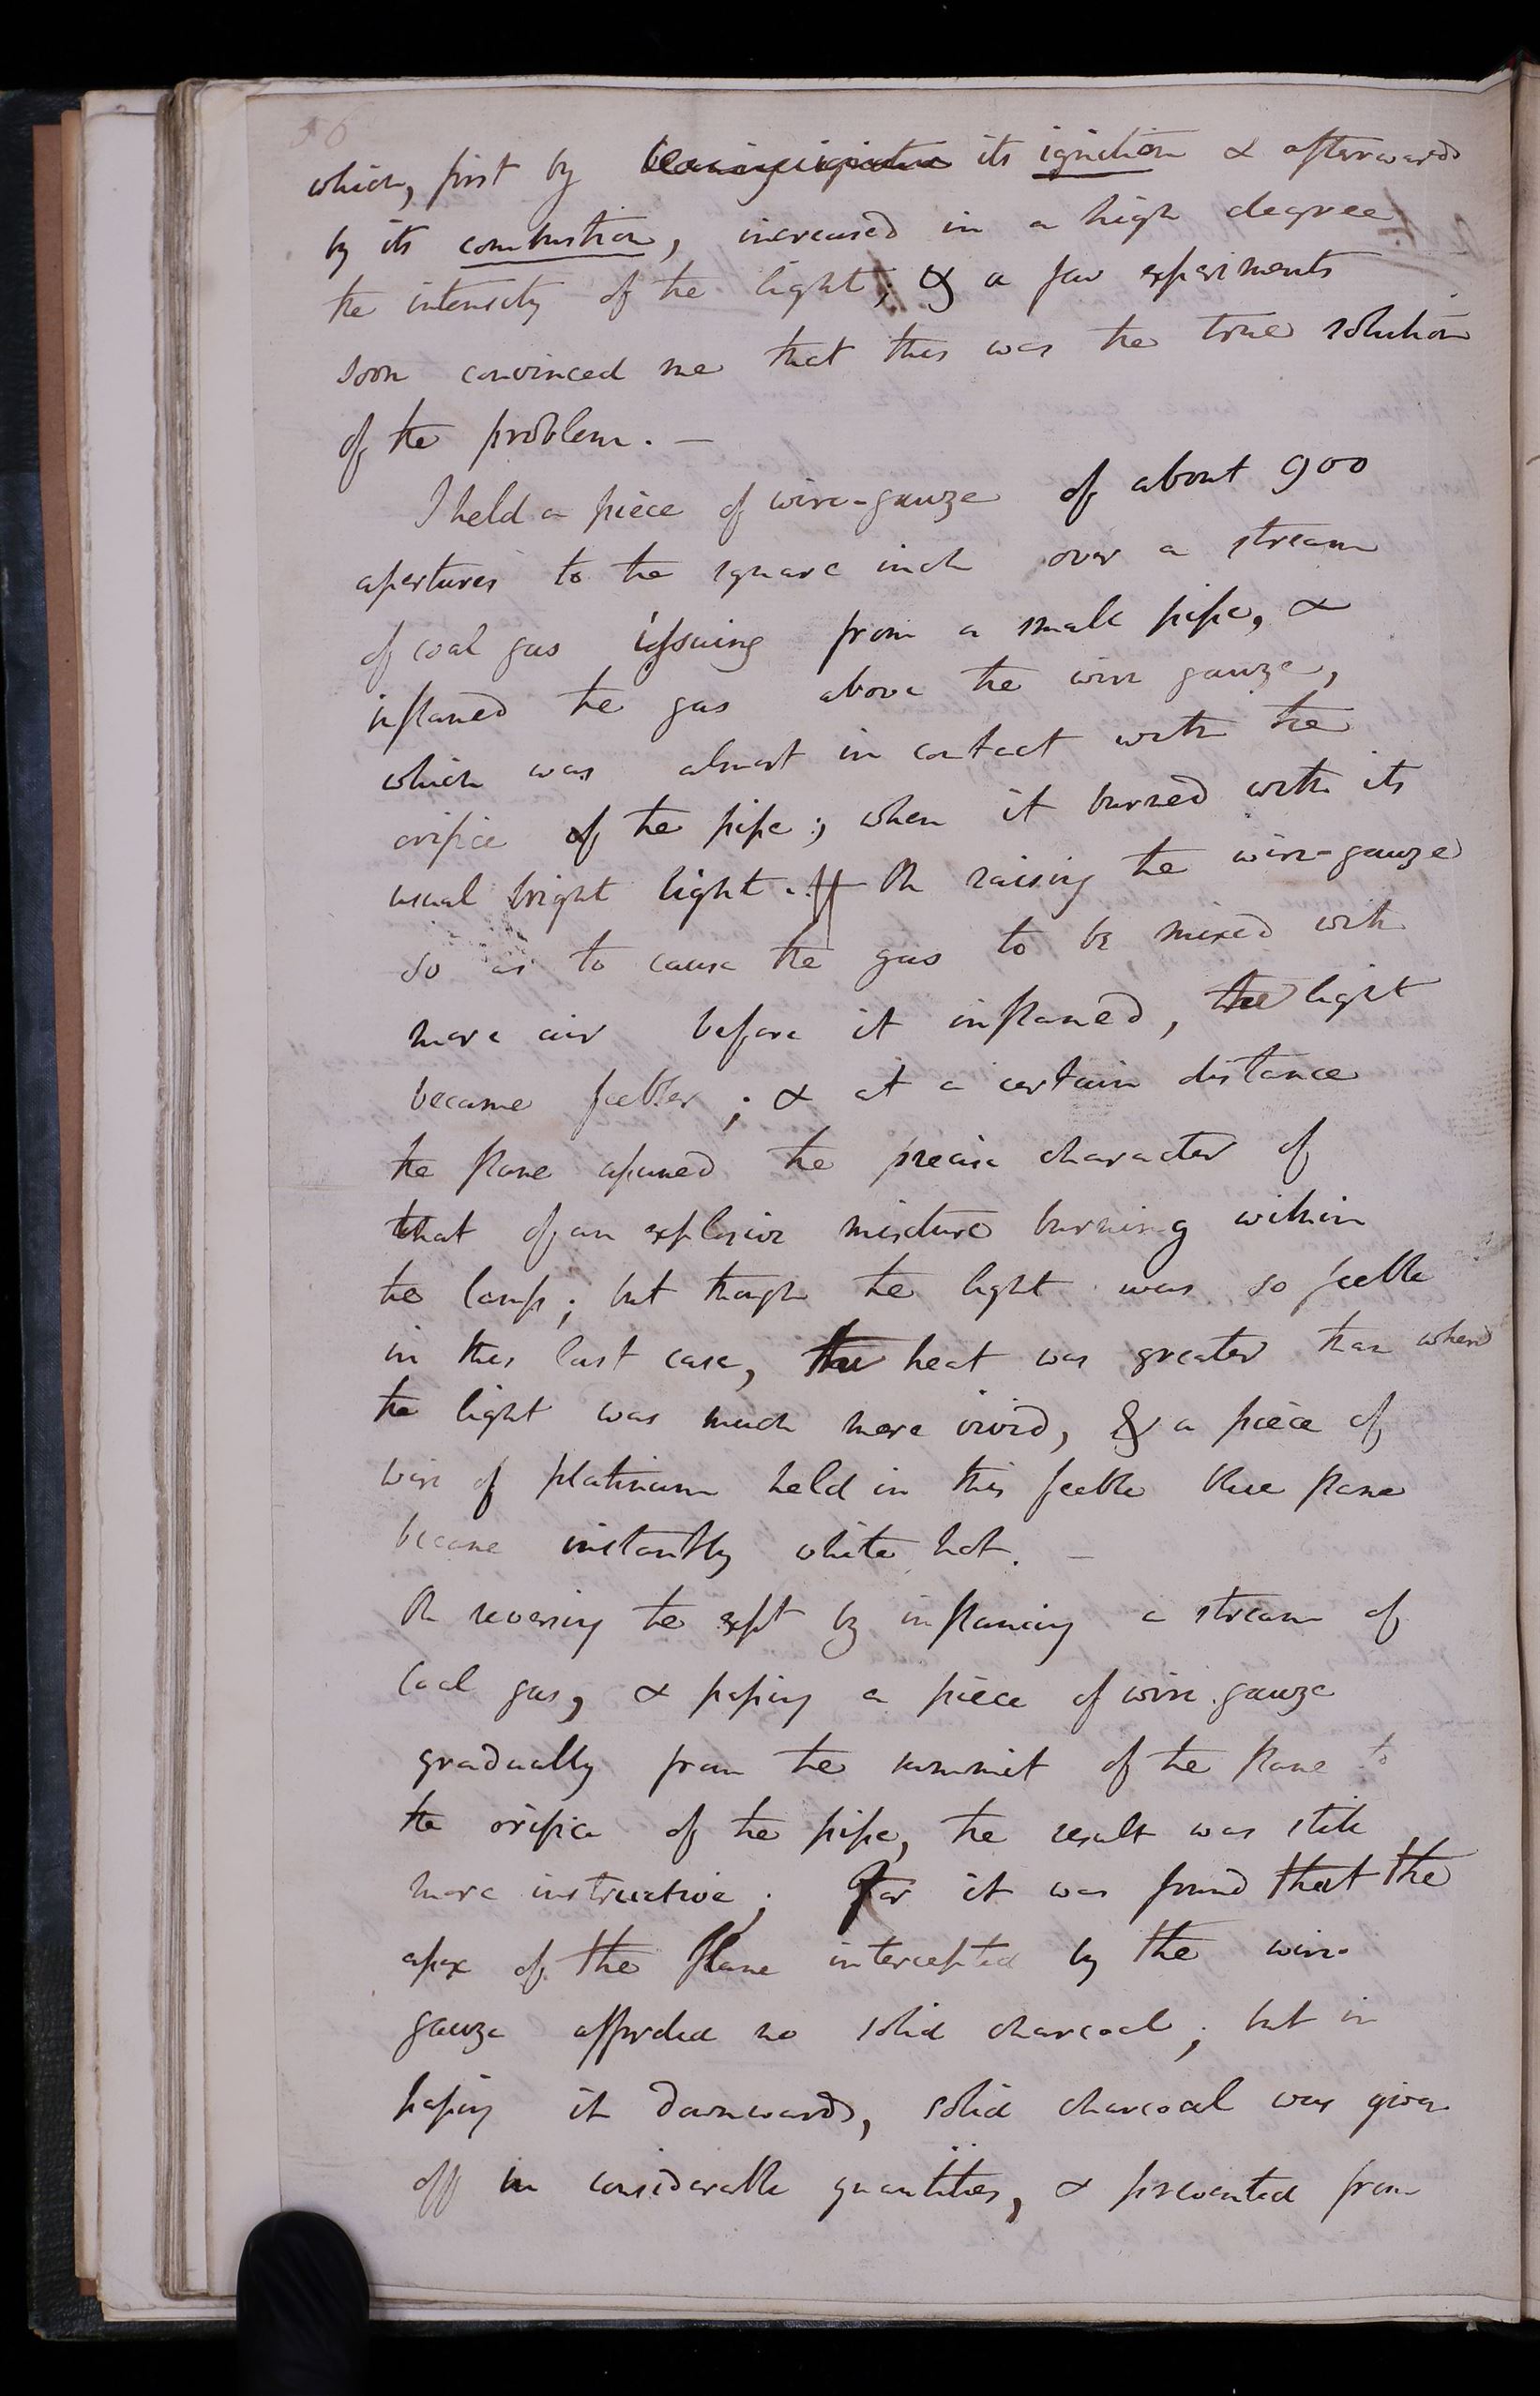 56
which, first by its ignition & afterwards
by its combustion, increased in a high degree
the intensity of the light; & a few experiments
soon convinced me that this was the true solution
of the problem. —
I held a piece of wire-gauze of about 900
apertures to the square inch over a stream
of coal gas issuing from a small pipe, &
inflamed the gas above the wire gauze,
which was almost in contact with the
orifice of the pipe; when it burned with its
usual bright light. On raising the wire-gauze
so as to cause the gas to be mixed with
more air before it inflamed, the light
became feebler; & at a certain distance
the flame assumed the precise character of
that of an explosive mixture burning within
the lamp; but though the light was so feeble
in this last case, the heat was greater than when
the light was much more vivid, & a piece of
wire of platinum held in this feeble blue flame
became instantly white hot. —
On reversing the expt by inflaming a stream of
coal gas, & passing a piece of wire gauze
gradually from the summit of the flame to
the orifice of the pipe, the result was still
more instructive; for it was found that the
apex of the flame intercepted by the wire-
gauze afforded no solid charcoal; but in
passing it downwards, solid charcoal was given
off in considerable quantities, & prevented from